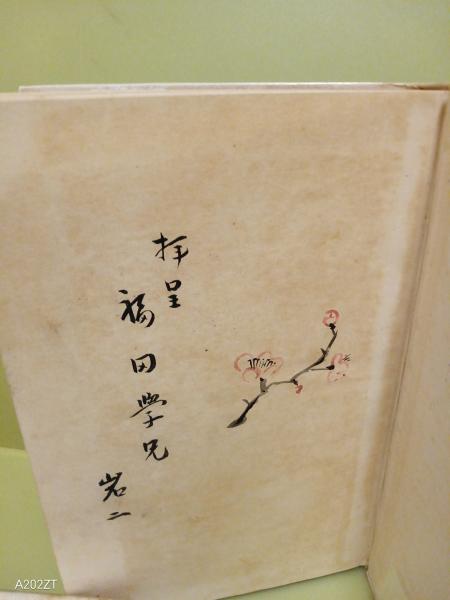 拝呈
福田學兄
岩二
A202ZT